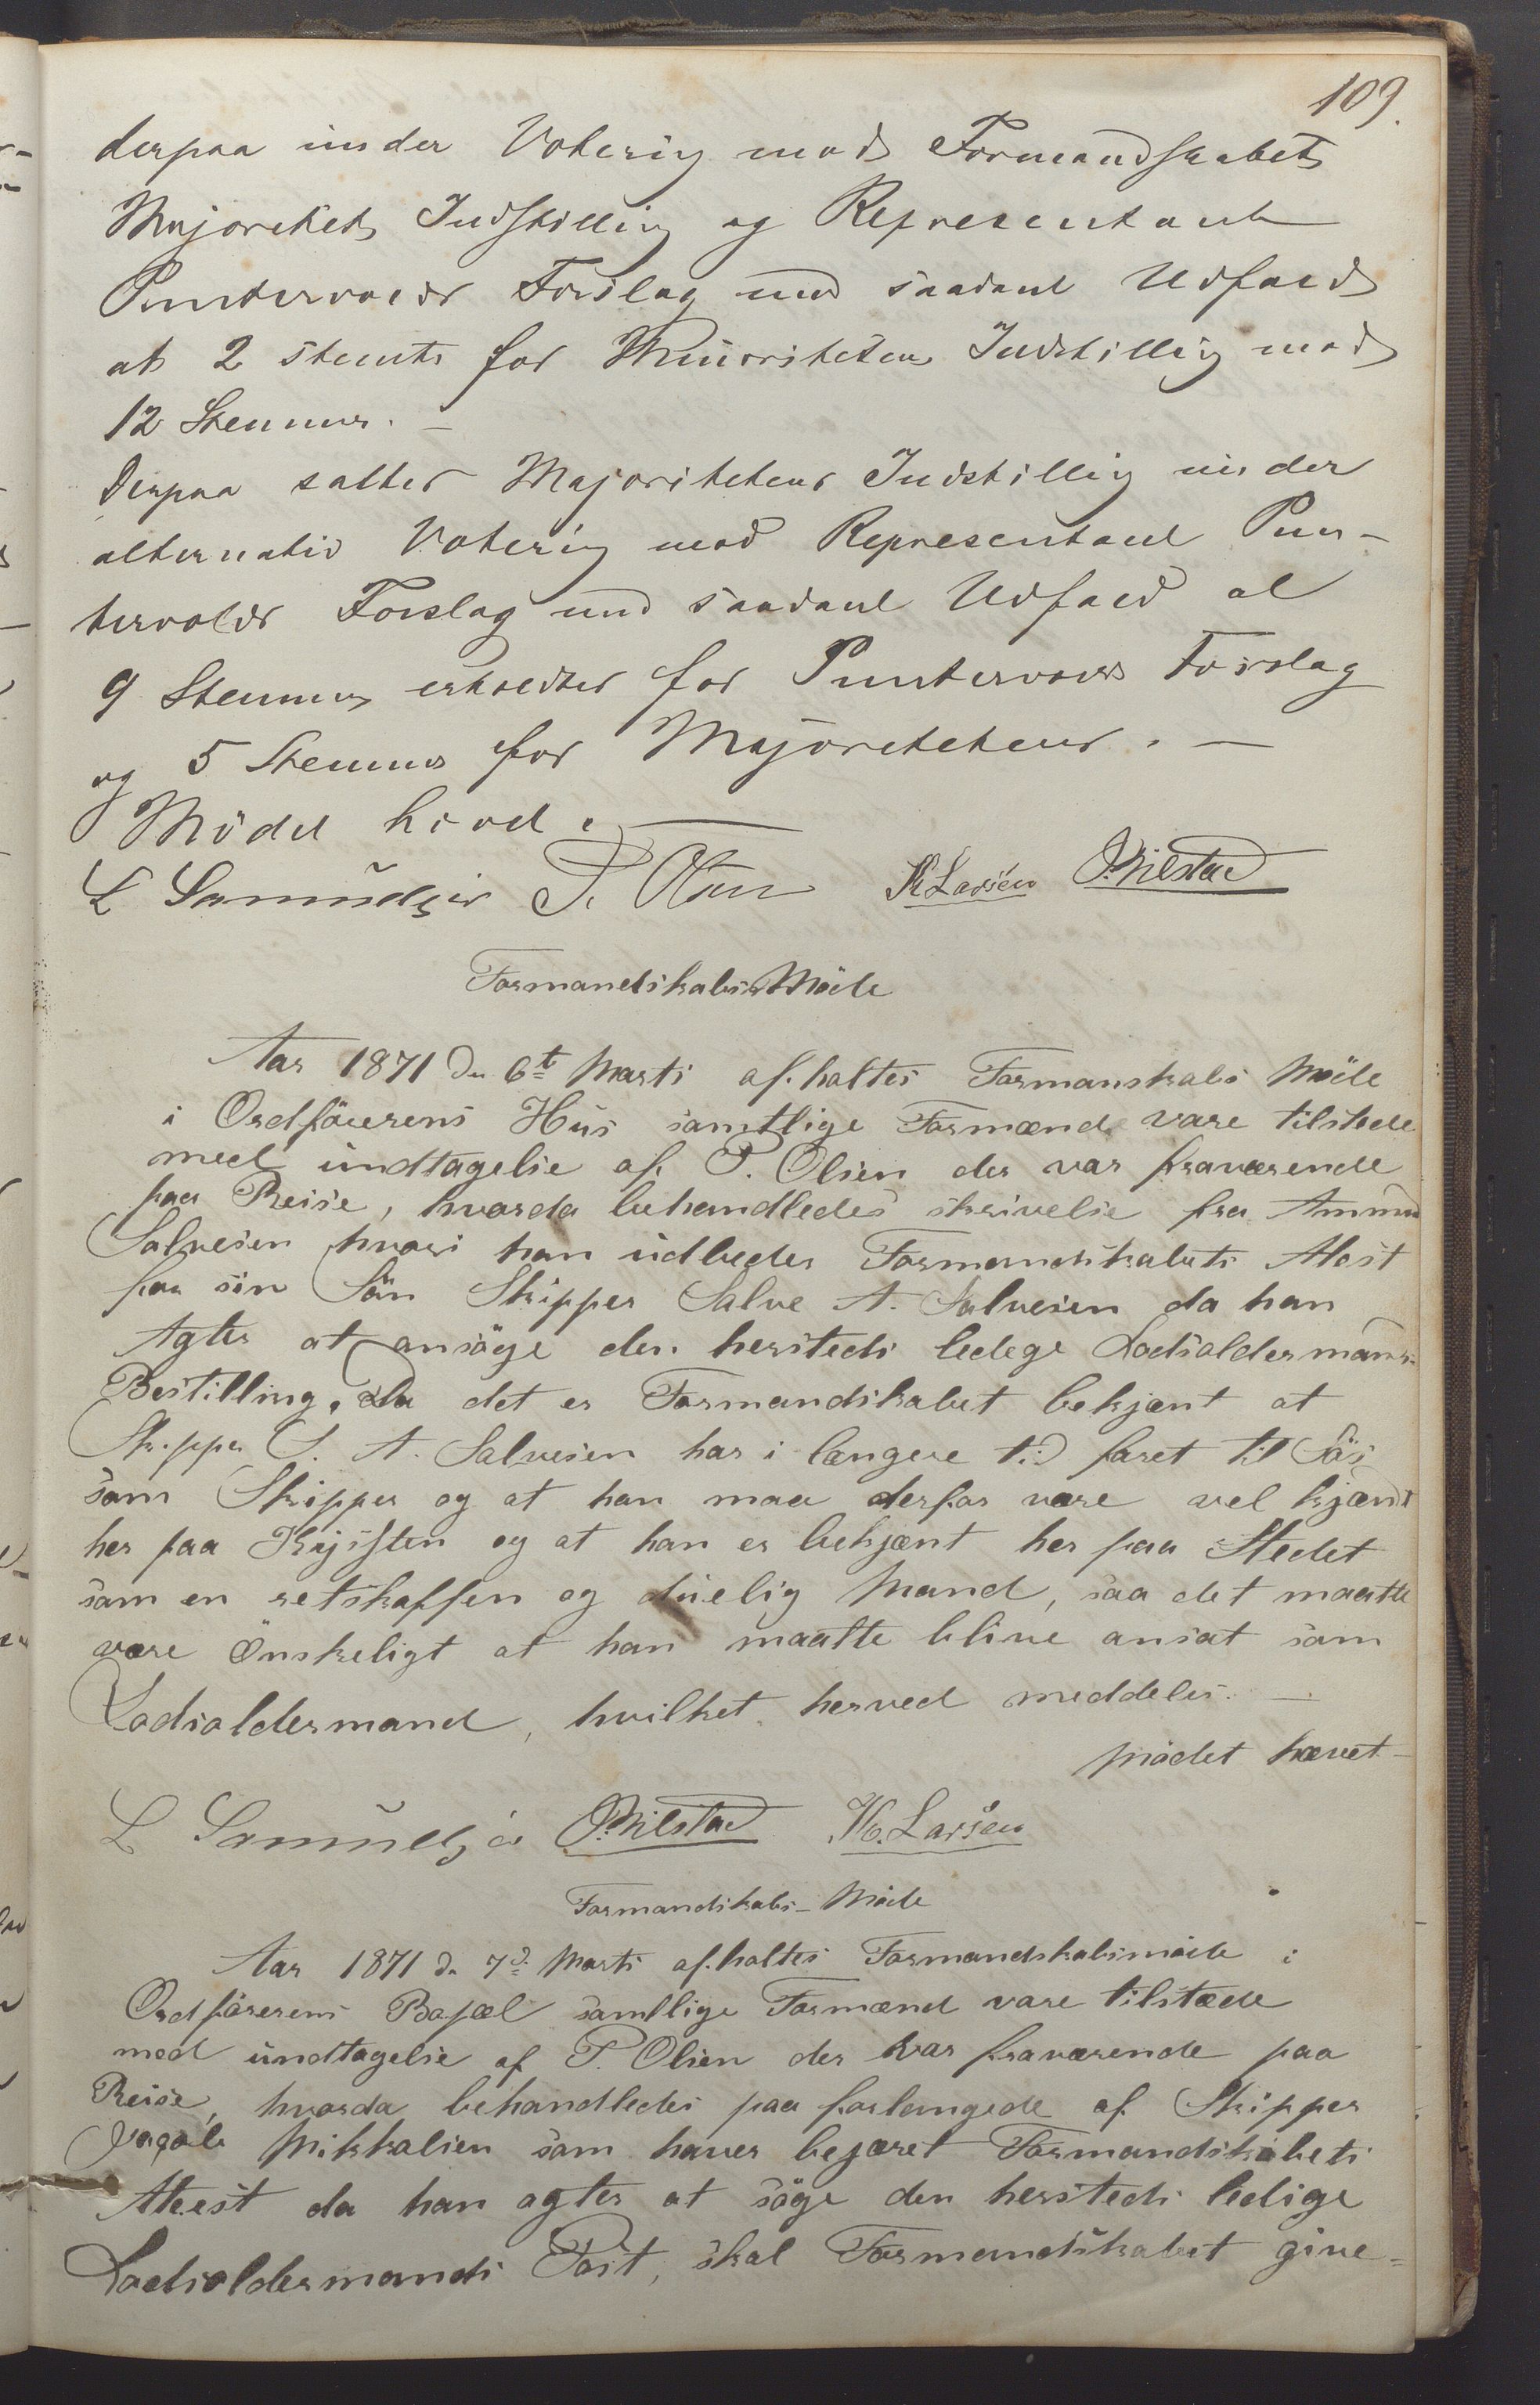 109.
derpaa under Votering mod Formandskabets
Majoritets Indstilling og Representant
Puntervolds Forslag med saadant Udfald
at 2 stemte for Minoritetens Indstilling mod
12 Stemmer. —
Derpaa sattes Majoritetens Indstilling under
alternativ Votering mod Representant Pun-
tervolds Forslag med saadant Udfald at
9 Stemmer erholdtes for Puntervolds Forslag
og 5 Stemmer for Majoritetens. —
Mödet hævet. —
L Samuelsen P. Olsen K Larsen O. Milstad
Formandskabs Möde
Aar 1871 d. 6t Marts af.holtes Formanskabs Möde
i Ordförerens Hus samtlige Formænd vare tilstede
med undtagelse af P. Olsen der var fraværende
paa Reise, hvorda behandledes skrivelse fra Ammun
Salvesen hvori han udbeder Formandskabets Atest
for sin Sön Skipper Salve A. Salvesen da han
Agter at ansöge den hersteds ledege Lodsoldermans
Bestilling, da det er Formandskabet bekjænt at
Skipper S. A. Salvesen har i længere tid faret til Sös
som Skipper og at han maa derfor være vel kjændt
her paa Kysten og at han er bekjænt her paa Stedet
som en retskaffen og duelig Mand, saa det maatte
være Önskeligt at han maatte blive ansat som
Lodsoldermand, hvilket herved meddeles. —
Mödet hævet —
L Samuelsen O. Milstad K. Larsen
Formandskabs- Möde
Aar 1871 d. 7d Marts af.holtes Formandskabsmöde i
Ordförerens Bopæl samtlige Formænd vare tilstæde
med undtagelse af P. Olsen der var fraværende paa
Reise, hvorda behandledes paa forlangede af Skipper
Jacob Mikkalsen som haver begæret Formandskabets
Ateest da han agter at söge den hersteds ledige
Lodsoldermands Post, skal Formandskabet give=